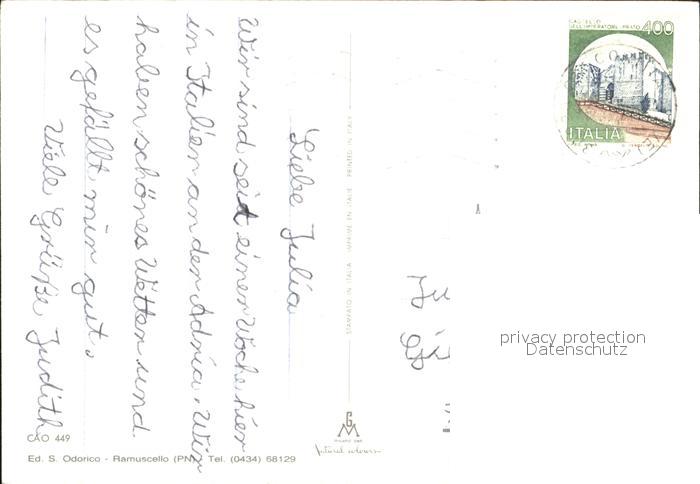 Liebe Julia
Wir sind seit einer Woche hier
in Italien an der Adria. Wir
haben schönes Wetter und
es gefällt mir gut.
Viele Grüße Judith
CAO 449
Ed. S. Odorico - Ramuscello (PN) Tel. (0434) 68129
STAMPATO IN ITALIA IMPRIMÉ EN ITALIE PRINTED IN ITALY
GM
natural colours
Ju
CASTELLO
DELL'IMPERATORE - PRATO 400
ITALIA
privacy protection
Datenschutz